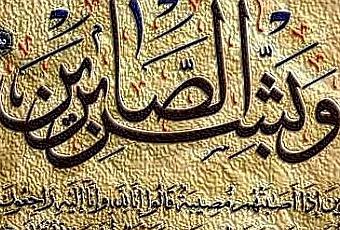 وَبَشِّرِ الصَّابِرِينَ
إِذَا أَصَابَتْهُم مُّصِيبَةٌ قَالُوا إِنَّا لِلَّهِ وَإِنَّا إِلَيْهِ رَاجِعُونَ